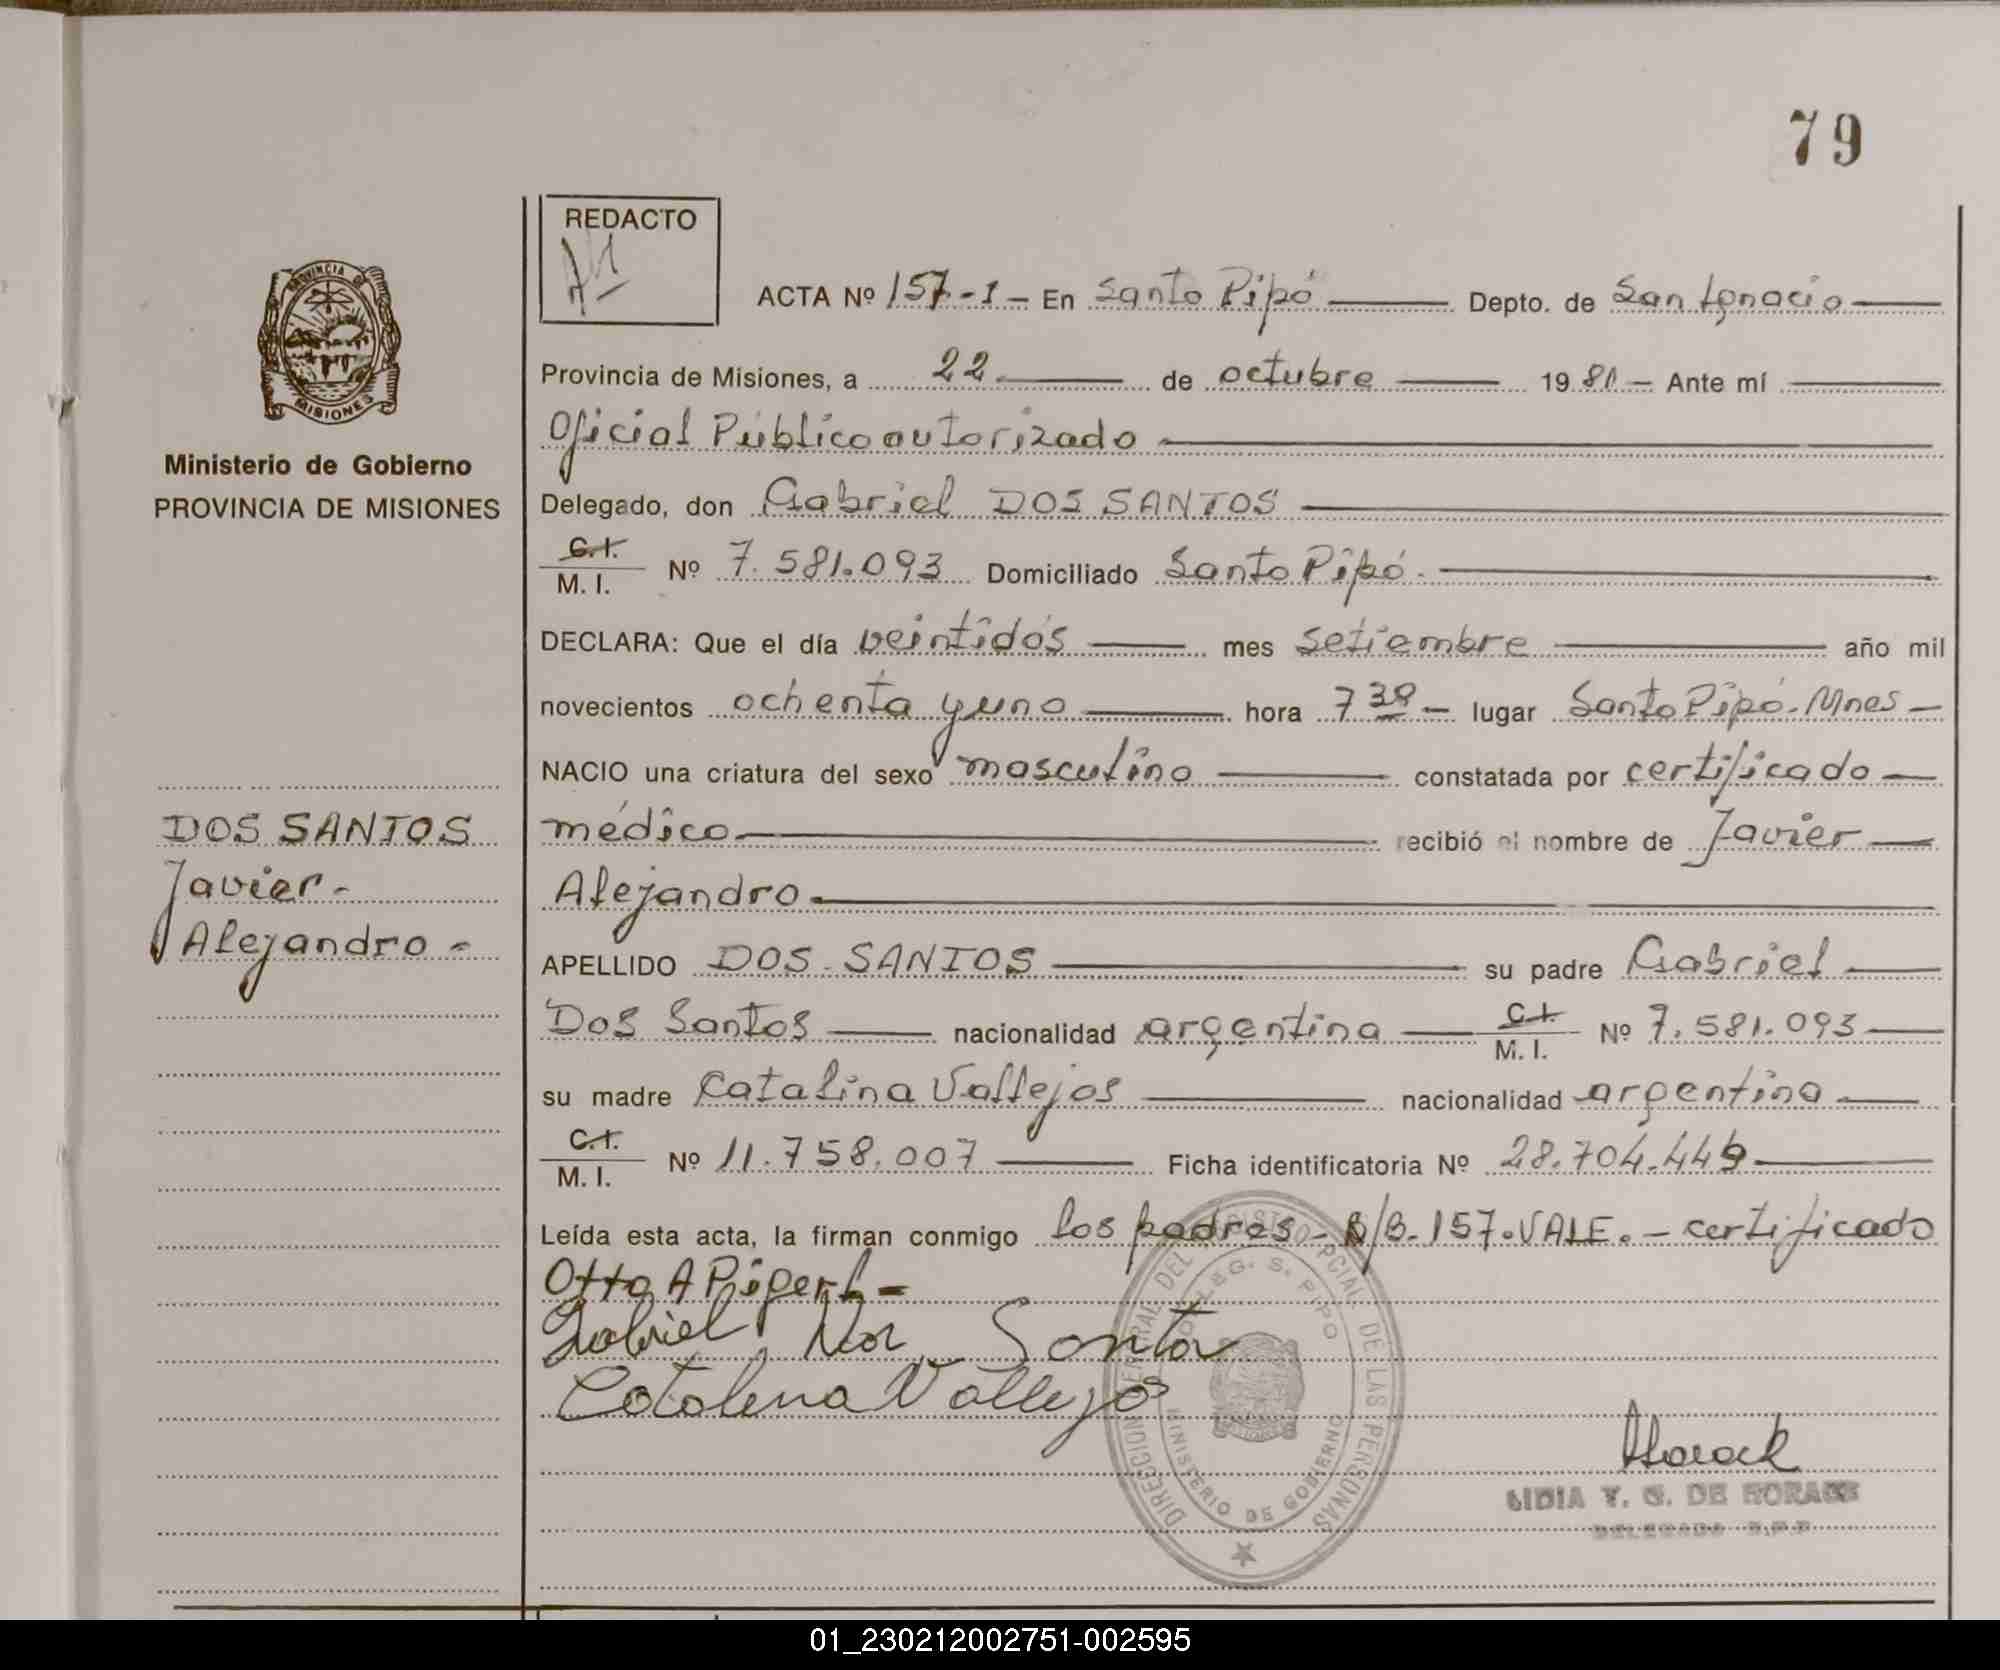 79
REDACTO
ACTA Nº 157-1- En Santo Pipó Depto. de San Ignacio
Provincia de Misiones, a 22 de octubre 1981 - Ante mí
Oficial Público autorizado
Delegado, don Gabriel DOS SANTOS
C.I. M. I. Nº 7.581.093 Domiciliado Santo Pipó.
DECLARA: Que el día veintidós mes setiembre año mil
novecientos ochenta y uno hora 7 30 - lugar Santo Pipó-Mnes-
NACIO una criatura del sexo masculino constatada por certificado
médico recibió el nombre de Javier
Alejandro
APELLIDO DOS SANTOS su padre Gabriel
Dos Santos nacionalidad argentina C.I. M. I. Nº 7.581.093
su madre Catalina Vallejos nacionalidad argentina
C.I. M. I. Nº 11.758.007 Ficha identificatoria Nº 28.704.449
Leída esta acta, la firman conmigo los padres - B/B.157.VALE.- certificado
Otto A
Gabriel Dos Santos
Catalena Vallejos
PROVINCIA DE MISIONES
Ministerio de Gobierno
PROVINCIA DE MISIONES
DOS SANTOS
Javier-
Alejandro-
DIRECCION GENERAL DEL REGISTRO PCIAL. DE LAS PERSONAS
DELEG. S. PIPO
MINISTERIO DE GOBIERNO
Horack
LIDIA Y. G. DE HORACK
DELEGADO R.P.P
01_230212002751-002595